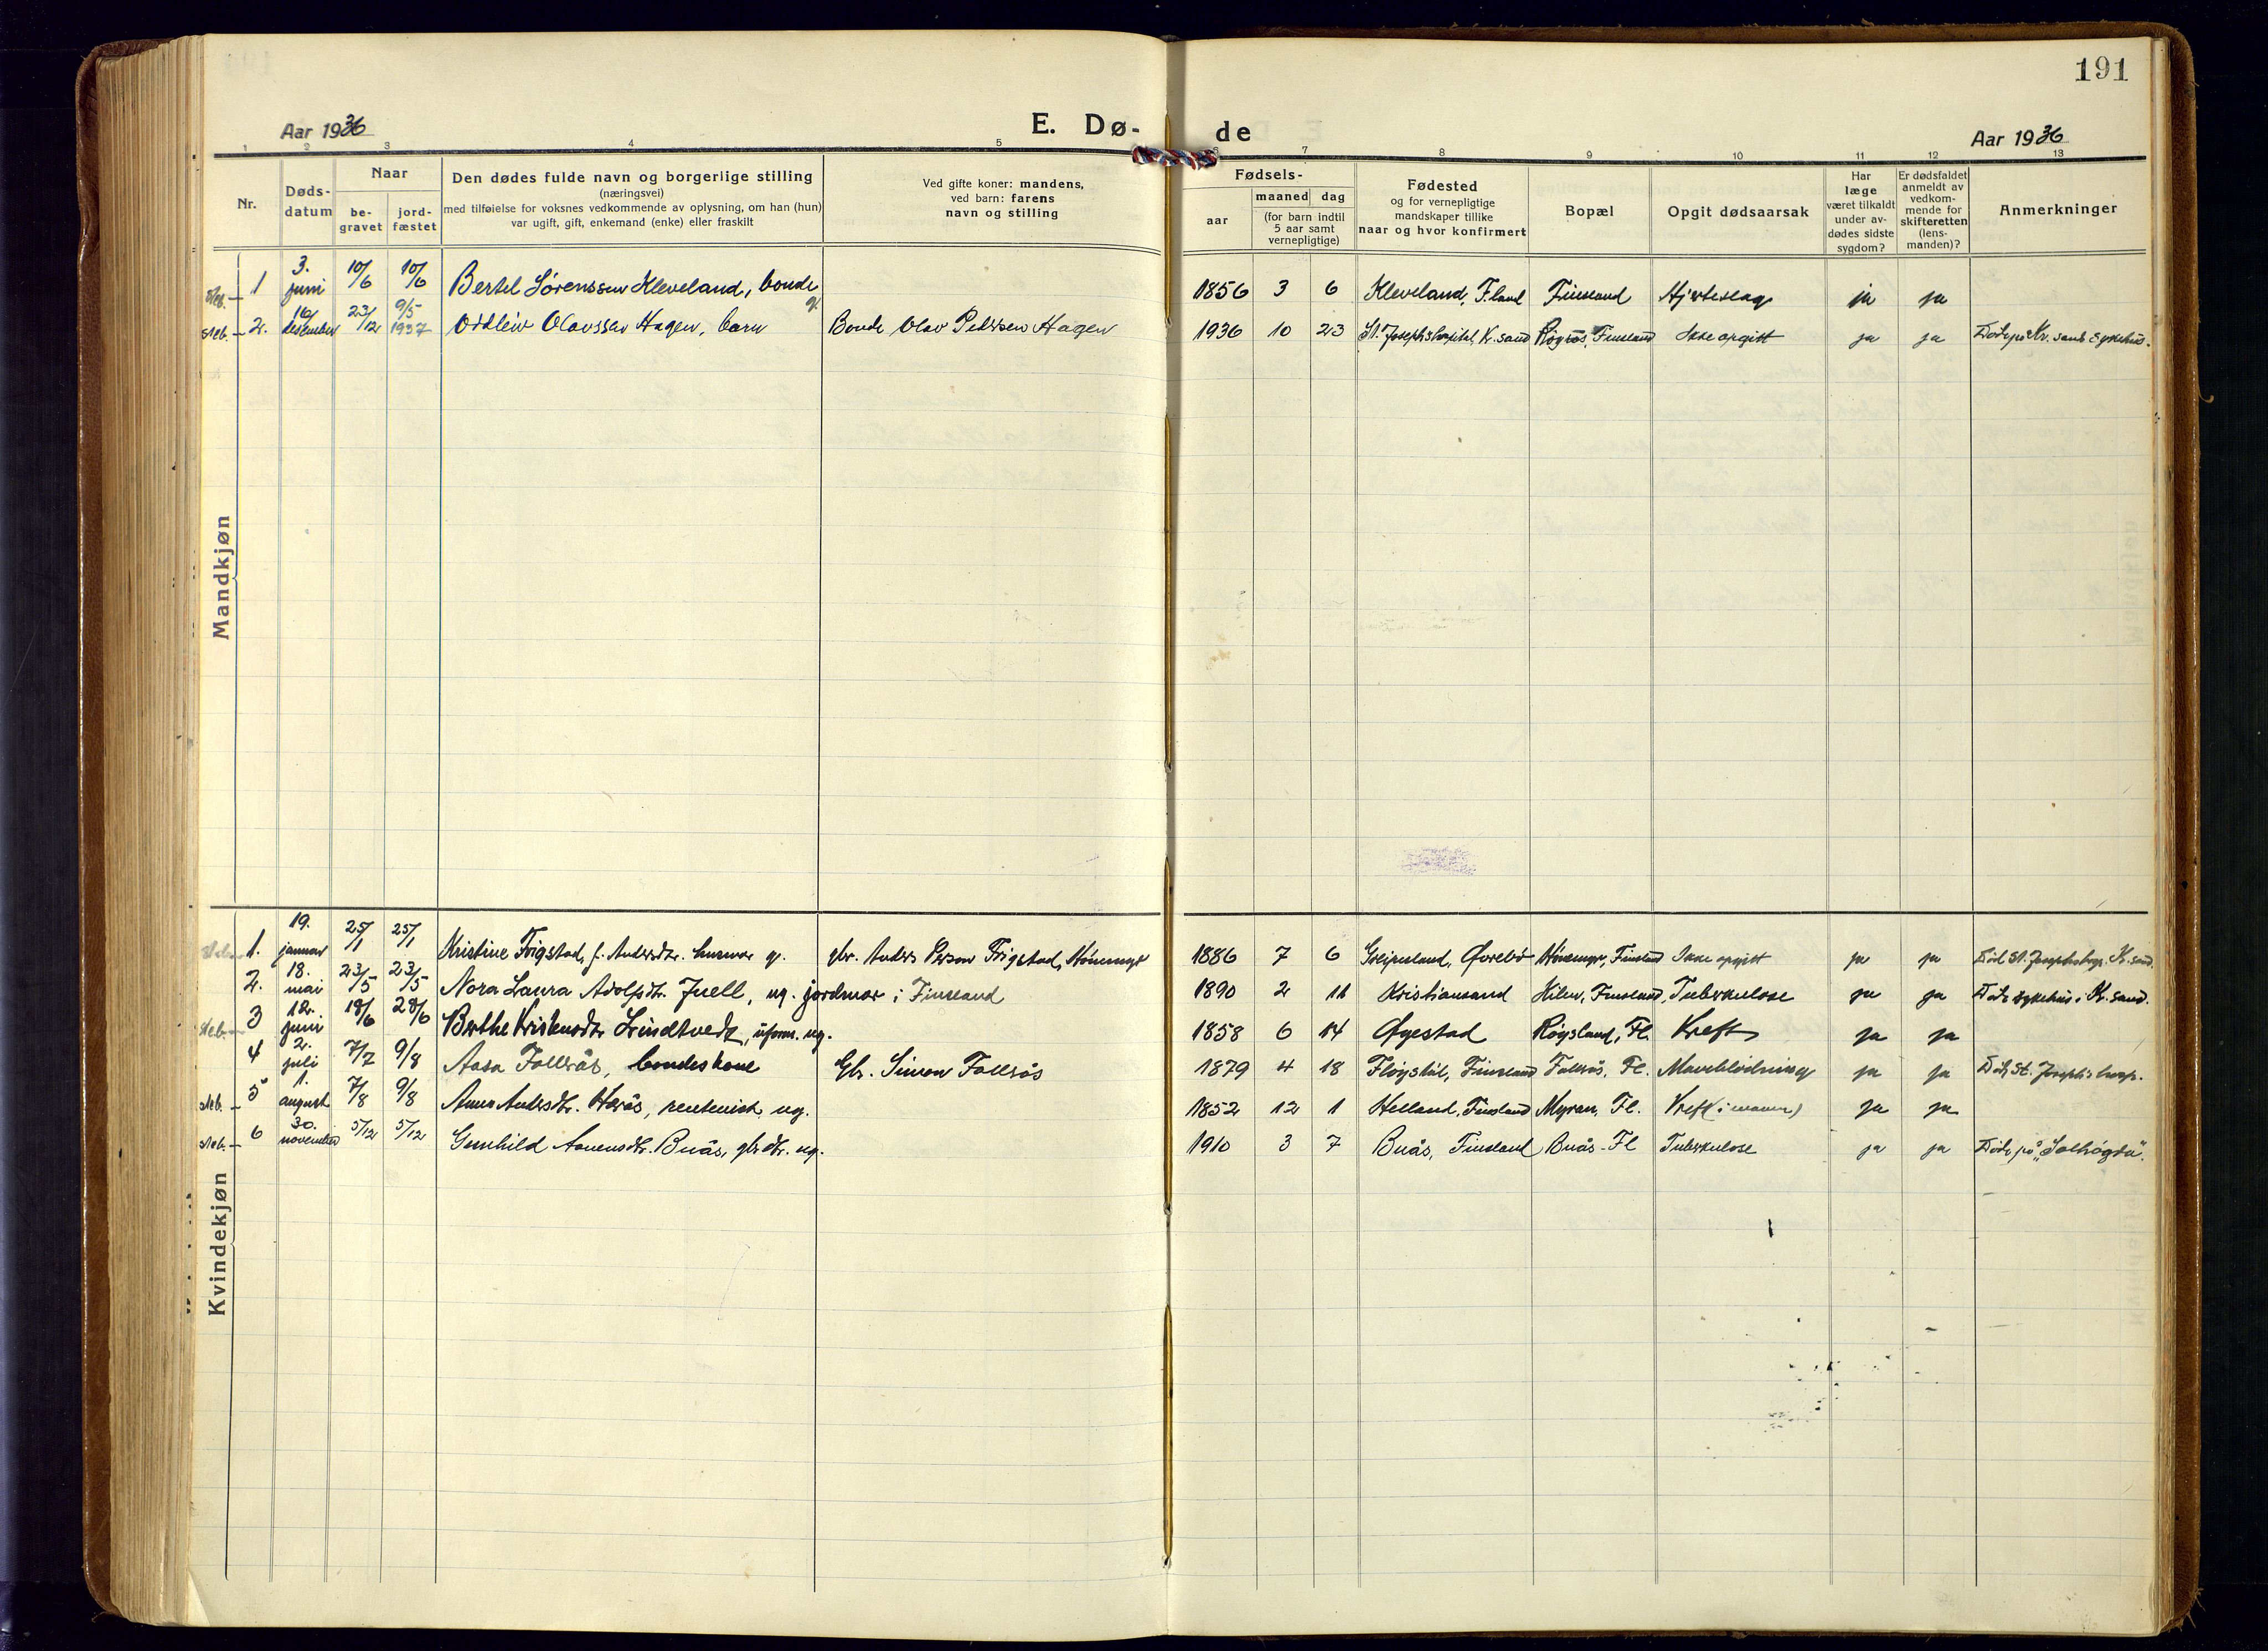 191
Aar 1936 E. Dø- de Aar 1936
1 2 3 4 5 6 7 8 9 10 11 12 13
Nr.
Døds-
datum
Naar
be-
gravet
jord-
fæstet
Den dødes fulde navn og borgerlige stilling
(næringsvei)
med tilføielse for voksnes vedkommende av oplysning, om han (hun)
var ugift, gift, enkemand (enke) eller fraskilt
Ved gifte koner: mandens,
ved barn: farens
navn og stilling
Fødsels-
aar
maaned dag
(for barn indtil
5 aar samt
vernepligtige)
Fødested
og for vernepligtige
mandskaper tillike
naar og hvor konfirmert
Bopæl
Opgit dødsaarsak
Har
læge
været tilkaldt
under av-
dødes sidste
sygdom?
Er dødsfaldet
anmeldt av
vedkom-
mende for
skifteretten
(lens-
manden)?
Anmerkninger
Mandkjøn
1 3. juni 10/6 10/6 Bertel Sørenssen Kleveland, bonde g. 1856 3 6 Kleveland, F.land Finsland Hjerteslag ja ja
2. 16/ desember 23/12 9/5 1937 Oddleiv Olavssen Hagen, barn Bonde Olav Pedersen Hagen 1936 10 23 St. Josephs hospital, Kr.sand Røgrås, Finsland Ikke opgitt ja ja Døde på Kr. sands sykehus.
Kvindekjøn
1. 19. januar 25/1 25/1 Kristine Frigstad, f. Andersdtr. husmor g. gbr. Anders Person Frigstad, Hønemyr 1886 7 6 Greipsland, Øvrebø Hønemyr, Finsland Ikke opgitt ja ja Død St. Josephs hosp. Kr.sand.
2. 18. mai 23/5 23/5 Nora Laura Adolfsdtr. Juell, ug. jordmor i Finsland 1890 2 11 Kristiansand Hilen, Finsland, Tuberkulose ja ja Døde sykehus i Kr. sand.
3 12. juni 18/6 28/6 Berthe Kristensdtr Lindtvedt, uform. ug. 1858 6 14 Øyestad Røysland, Fl. Kreft ja ja
4 2. juli 7/7 9/8 Aasa Follerås, bondekone Gbr. Simon Follerås 1879 4 18 Fløystøl, Finsland Follerås, Fl. Maveblødning ja ja Døde St. Joseph's hosp.
5 1. august 7/8 9/8 Anna Andersdtr. Herås, rentenist ug. 1852 12 1 Helland, Finsland Myran, Fl. Kreft (i maven) ja ja
6 30. november 5/12 5/12 Gunhild Aanensdtr. Buås, gbrdtr. ug. 1910 3 7 Buås, Finsland Buås - Fl Tuberkulose ja ja Døde på "Solhøgda".